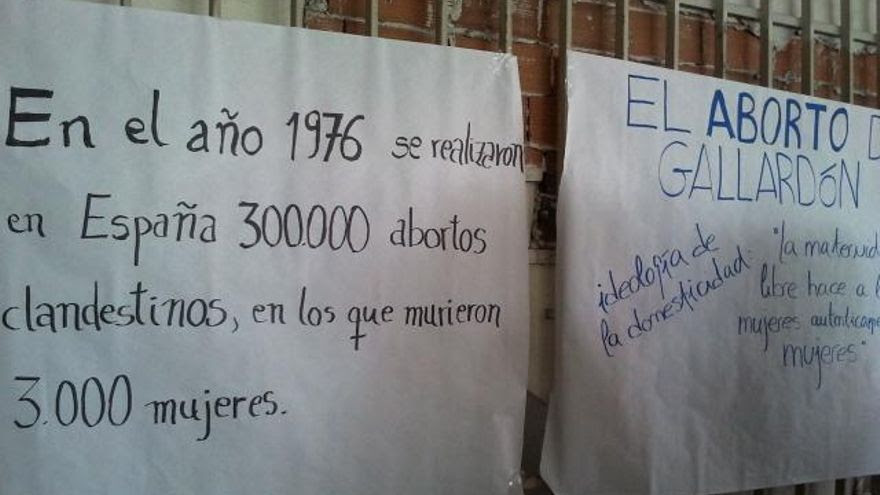 En el año 1976 se realizaron
en España 300.000 abortos
clandestinos, en los que murieron
3.000 mujeres.
EL ABORTO D
GALLARDÓN
ideología de
la domesticidad.
"la maternid
libre hace a l
mujeres auténticame
mujeres"